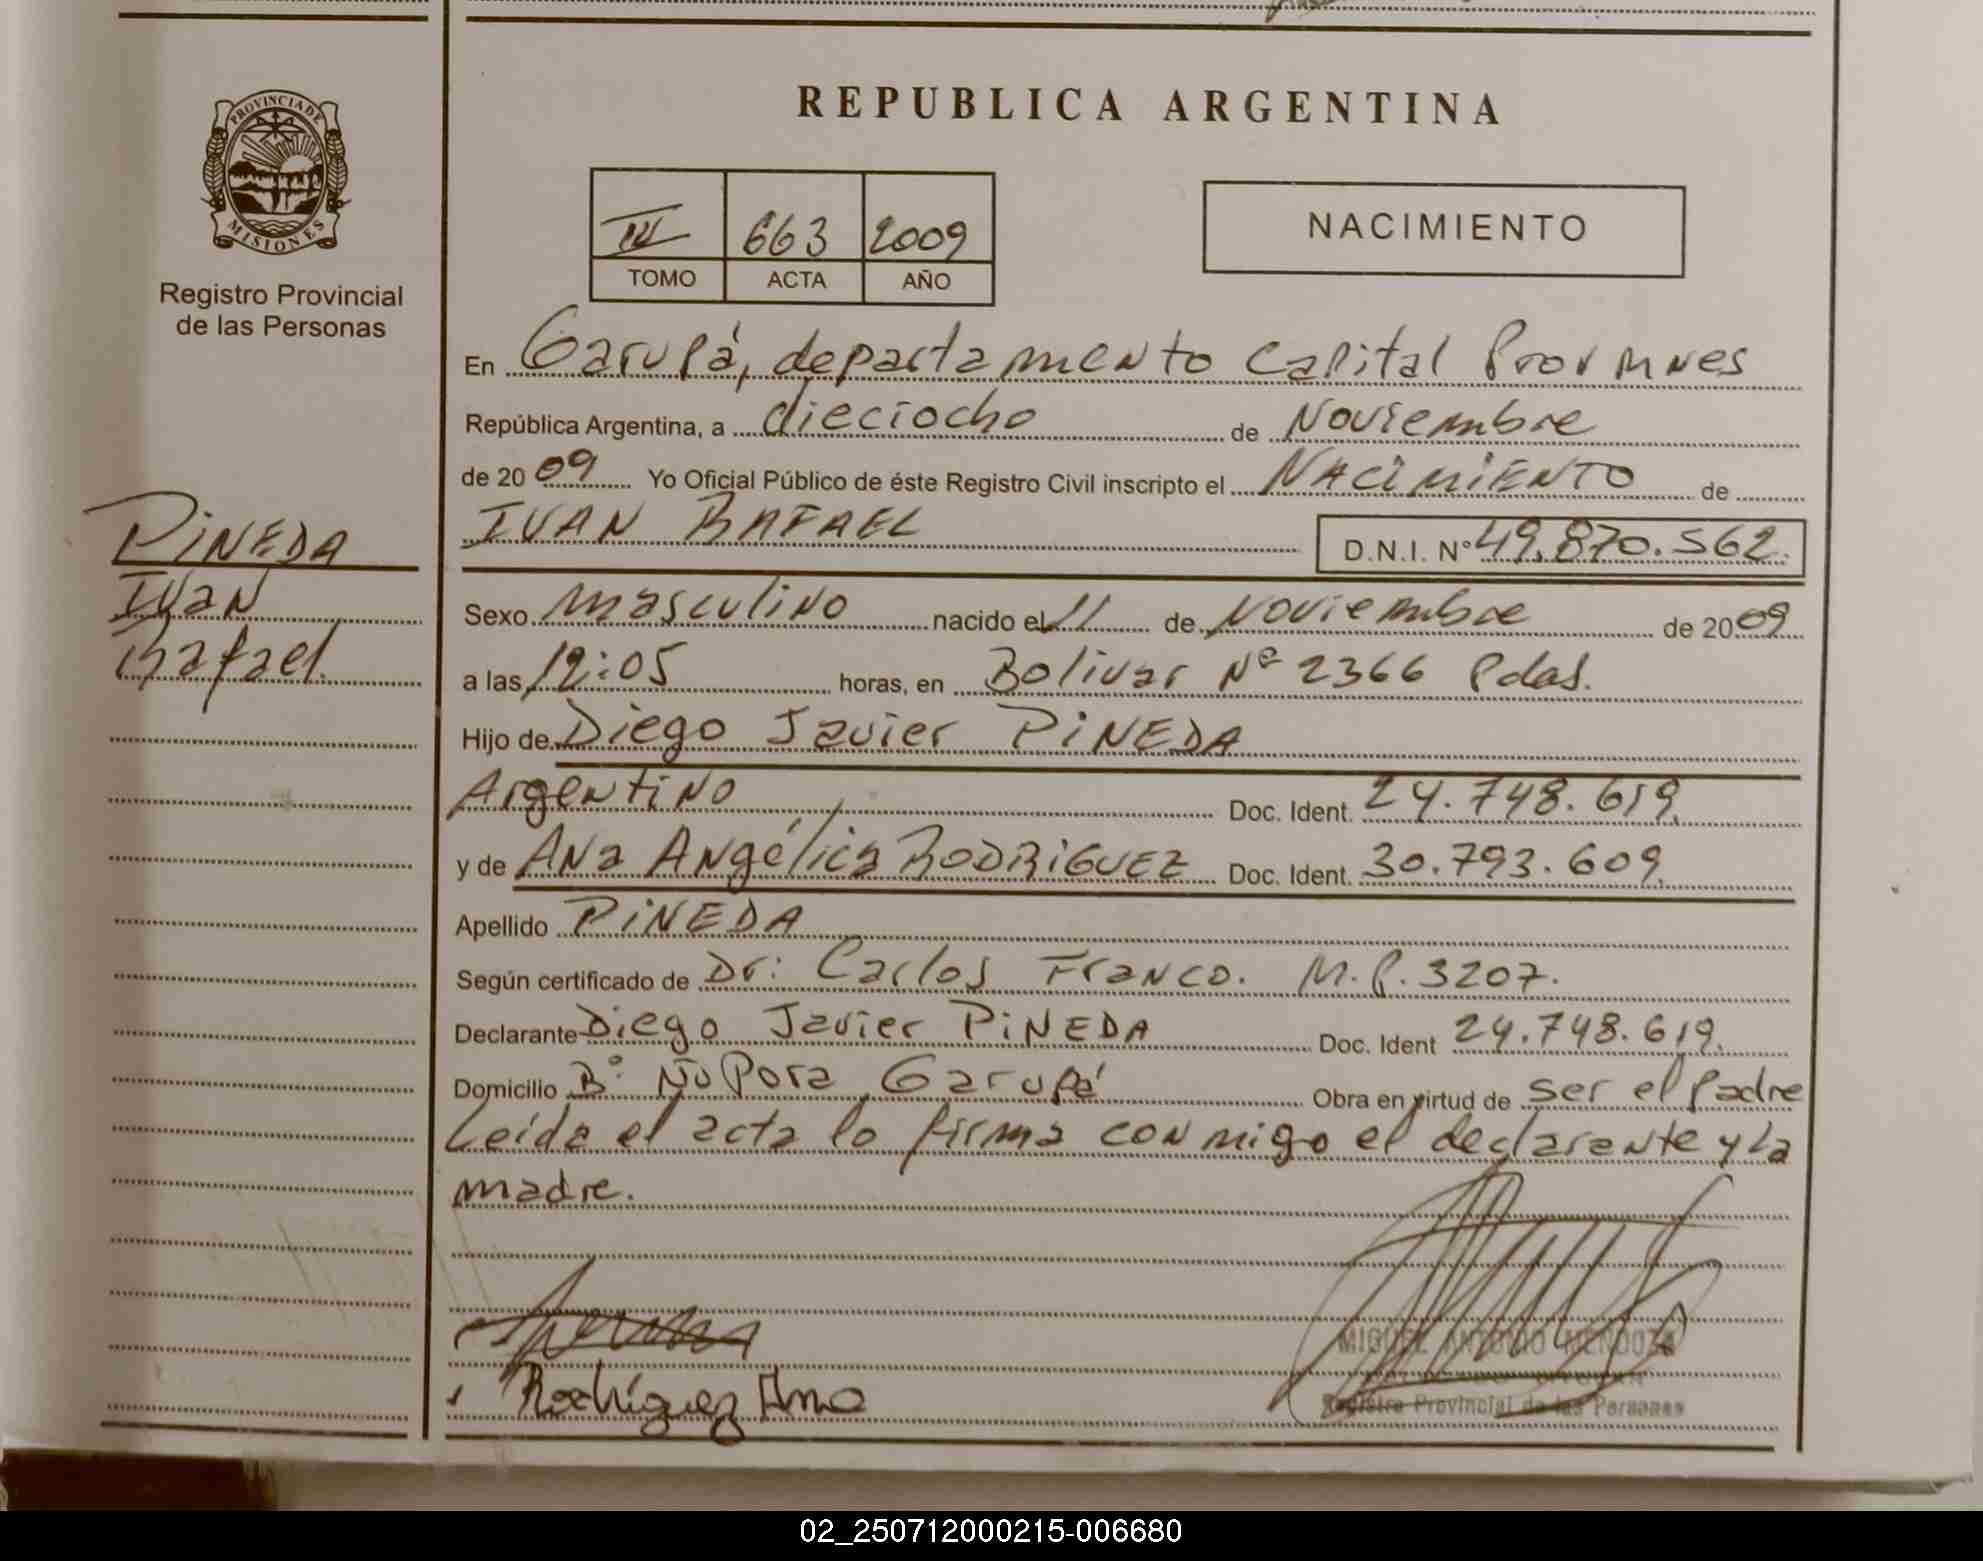 PROVINCIA DE
MISIONES
Registro Provincial
de las Personas
PINEDA
Ivan
Rafael.
REPUBLICA ARGENTINA
663 2009
TOMO ACTA AÑO
NACIMIENTO
En Garupá, departamento Capital Prov Mnes
República Argentina, a dieciocho de Noviembre
de 2009 Yo Oficial Público de éste Registro Civil inscripto el NACIMIENTO de
IVAN RAFAEL D.N.I. N° 49.870.562.
Sexo masculino nacido el 11 de Noviembre de 2009
a las 12:05 horas, en Bolivar Nº 2366 Pdas.
Hijo de Diego Javier PINEDA
Argentino Doc. Ident. 24.748.619.
y de Ana Angélica RODRIGUEZ Doc. Ident. 30.793.609.
Apellido PINEDA
Según certificado de Dr: Carlos Franco. M.P. 3207.
Declarante Diego Javier PINEDA Doc. Ident 24.748.619.
Domicilio Bº Ñu Pora Garupá Obra en virtud de ser el padre
Leída el acta lo firma conmigo el declarante y la
madre.
Rodríguez Ana
MIGUEL ANTONIO MENDOZA
Registro Provincial de las Personas
02_250712000215-006680